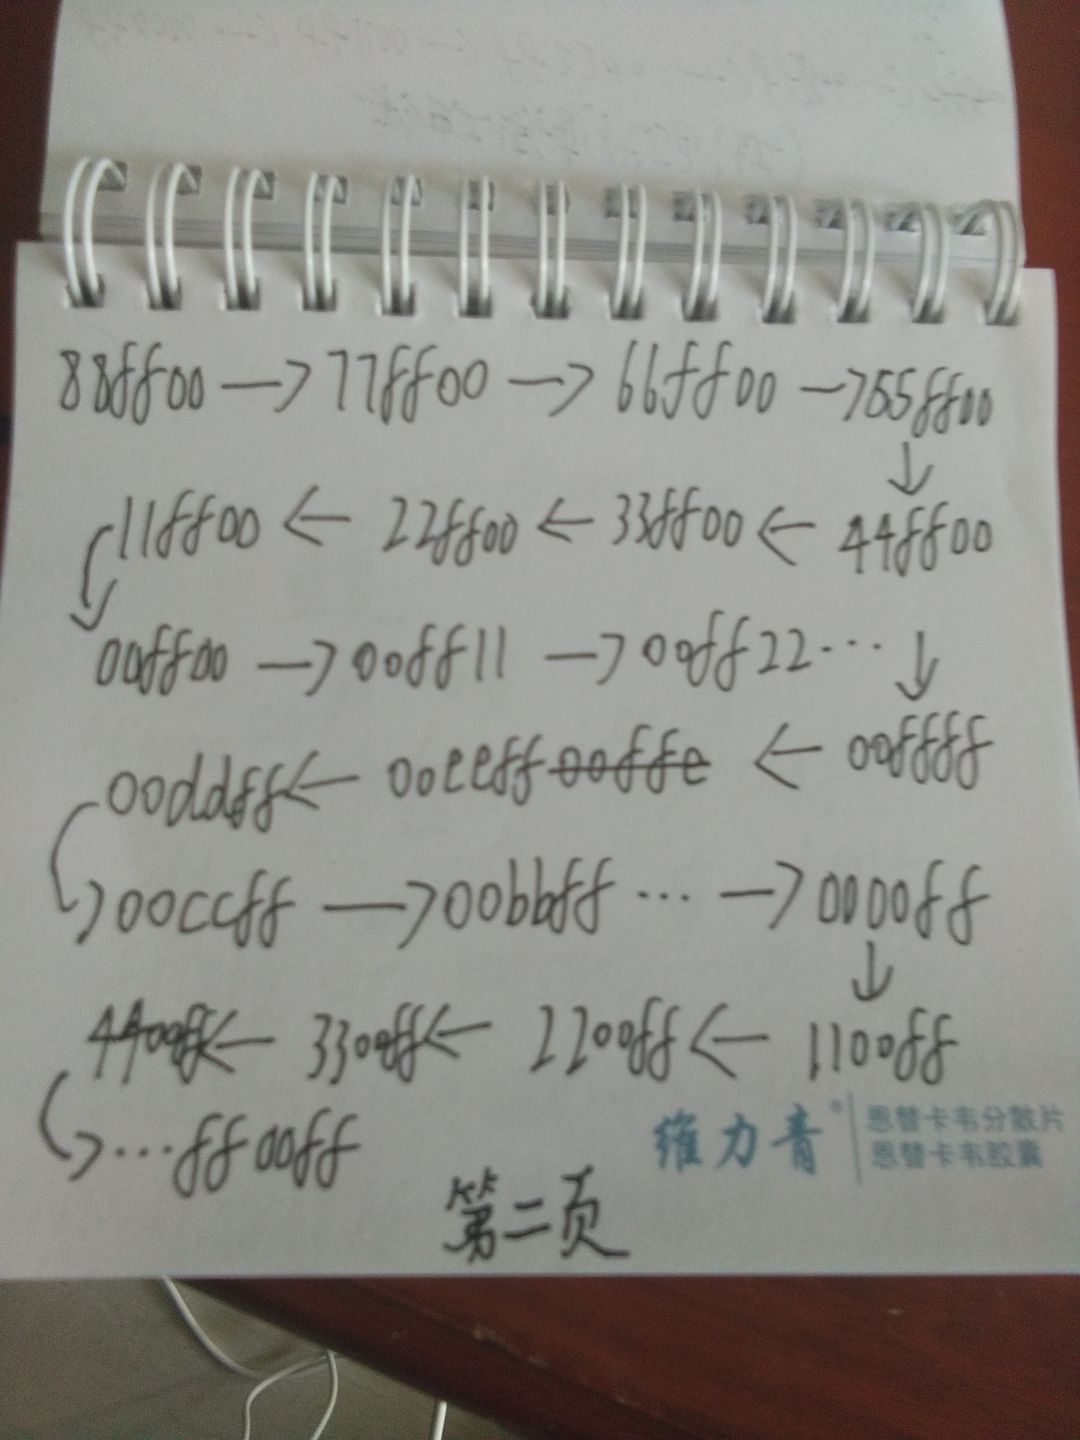 88ff00 → 77ff00 → 66ff00 → 55ff00
↓
11ff00 ← 22ff00 ← 33ff00 ← 44ff00
00ff00 → 00ff11 → 00ff22 ··· ↓
00ddff ← 00eeff 00ffe ← 00ffff
→ 00ccff → 00bbff ··· → 0000ff
↓
4400ff ← 3300ff ← 2200ff ← 1100ff
→ ··· ff00ff
维力青® 恩替卡韦分散片
恩替卡韦胶囊
第二页